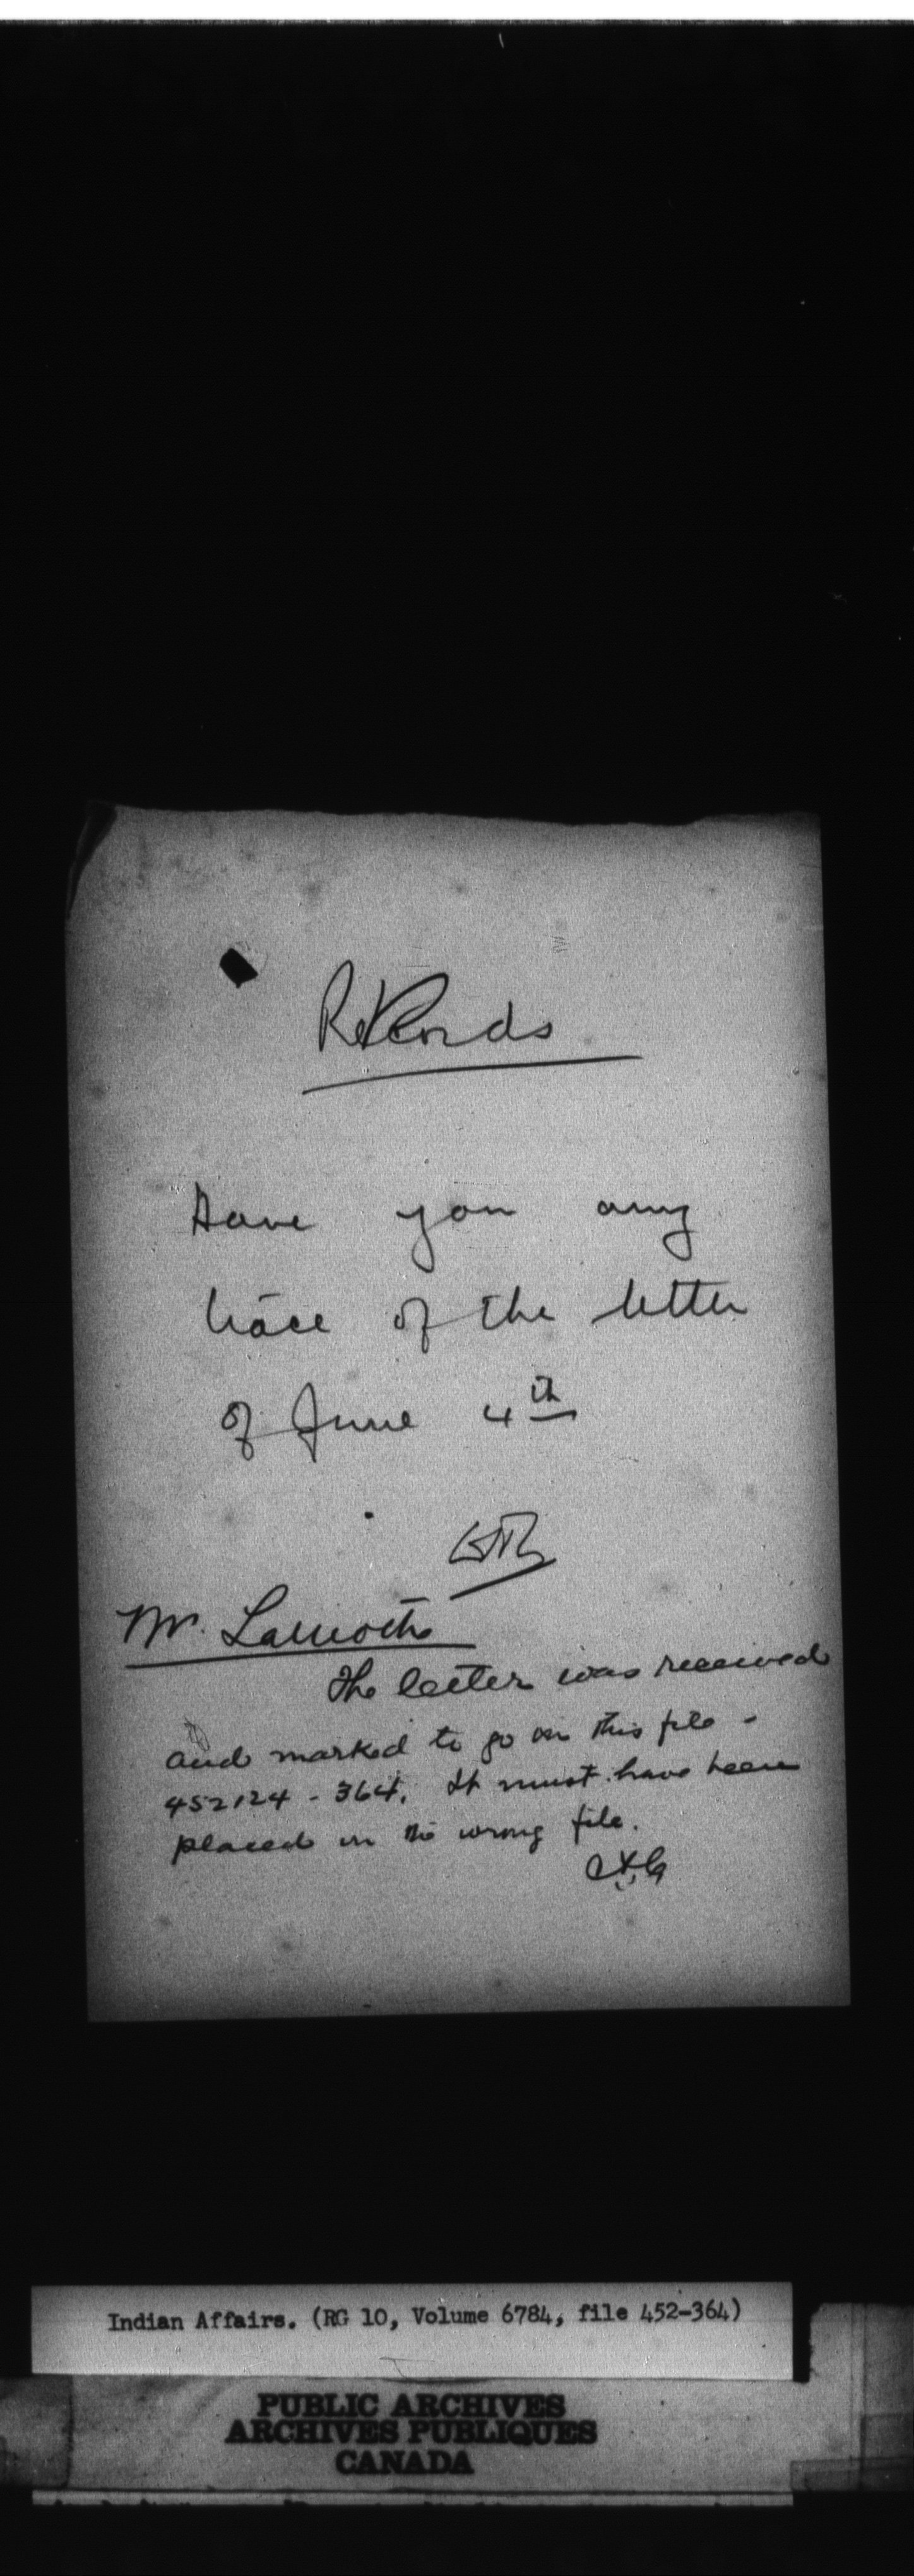 Records
Have you any
trace of the letter
of June 4th
Mr. Lamothe
The letter was received
and marked to go on this file -
452124 - 364. It must have been
placed in the wrong file.
Indian Affairs. (RG 10, Volume 6784, file 452-364)
PUBLIC ARCHIVES
ARCHIVES PUBLIQUES
CANADA